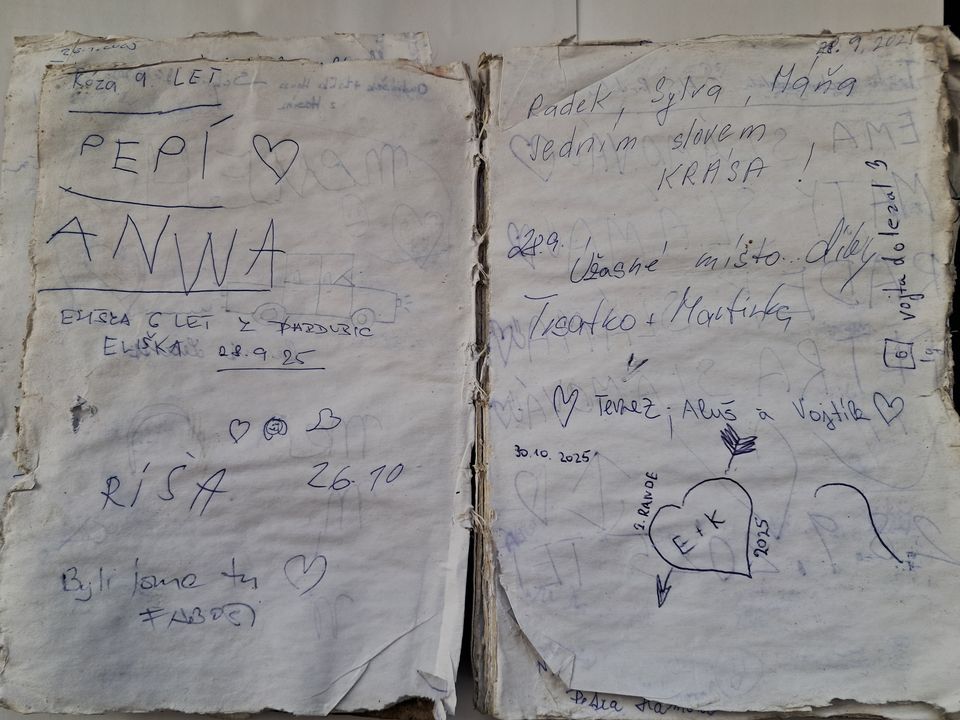 Róza 9. LET
PEPÍ
ANWA
ELIŠKA 6 LET Z PARDUBIC
ELIŠKA 28.9.25
RÍŠA 26.10
Byli jsme tu
28.9.202
Radek, Sylva, Máňa
Jedním slovem
KRÁSA!
28.9.
Úžasné místo.. díky
+ Martinka
vojta dolezal 3
6
a Vojtík
30.10.2025
2. RANDE
E + K
2025
Petra